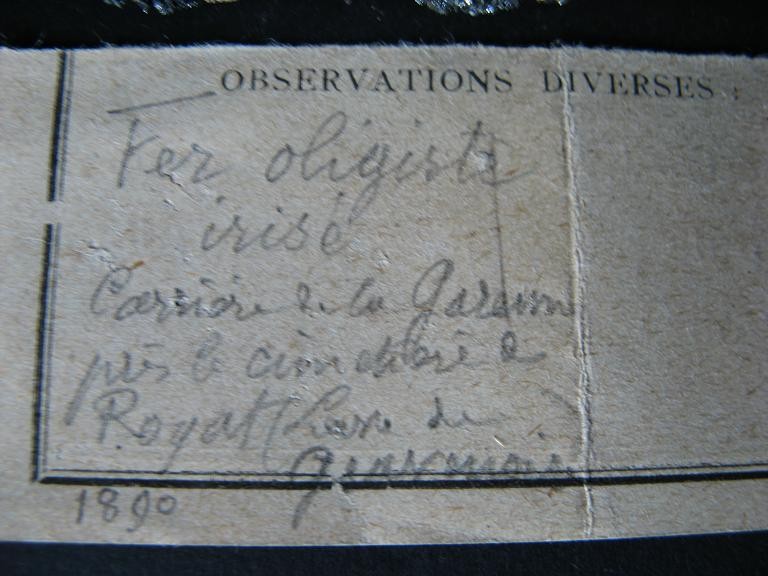 OBSERVATIONS DIVERSES :
Fer oligiste
irisé
Carrière de la
près le cimetière de
Royat (Lave de
Gravenoire
1890